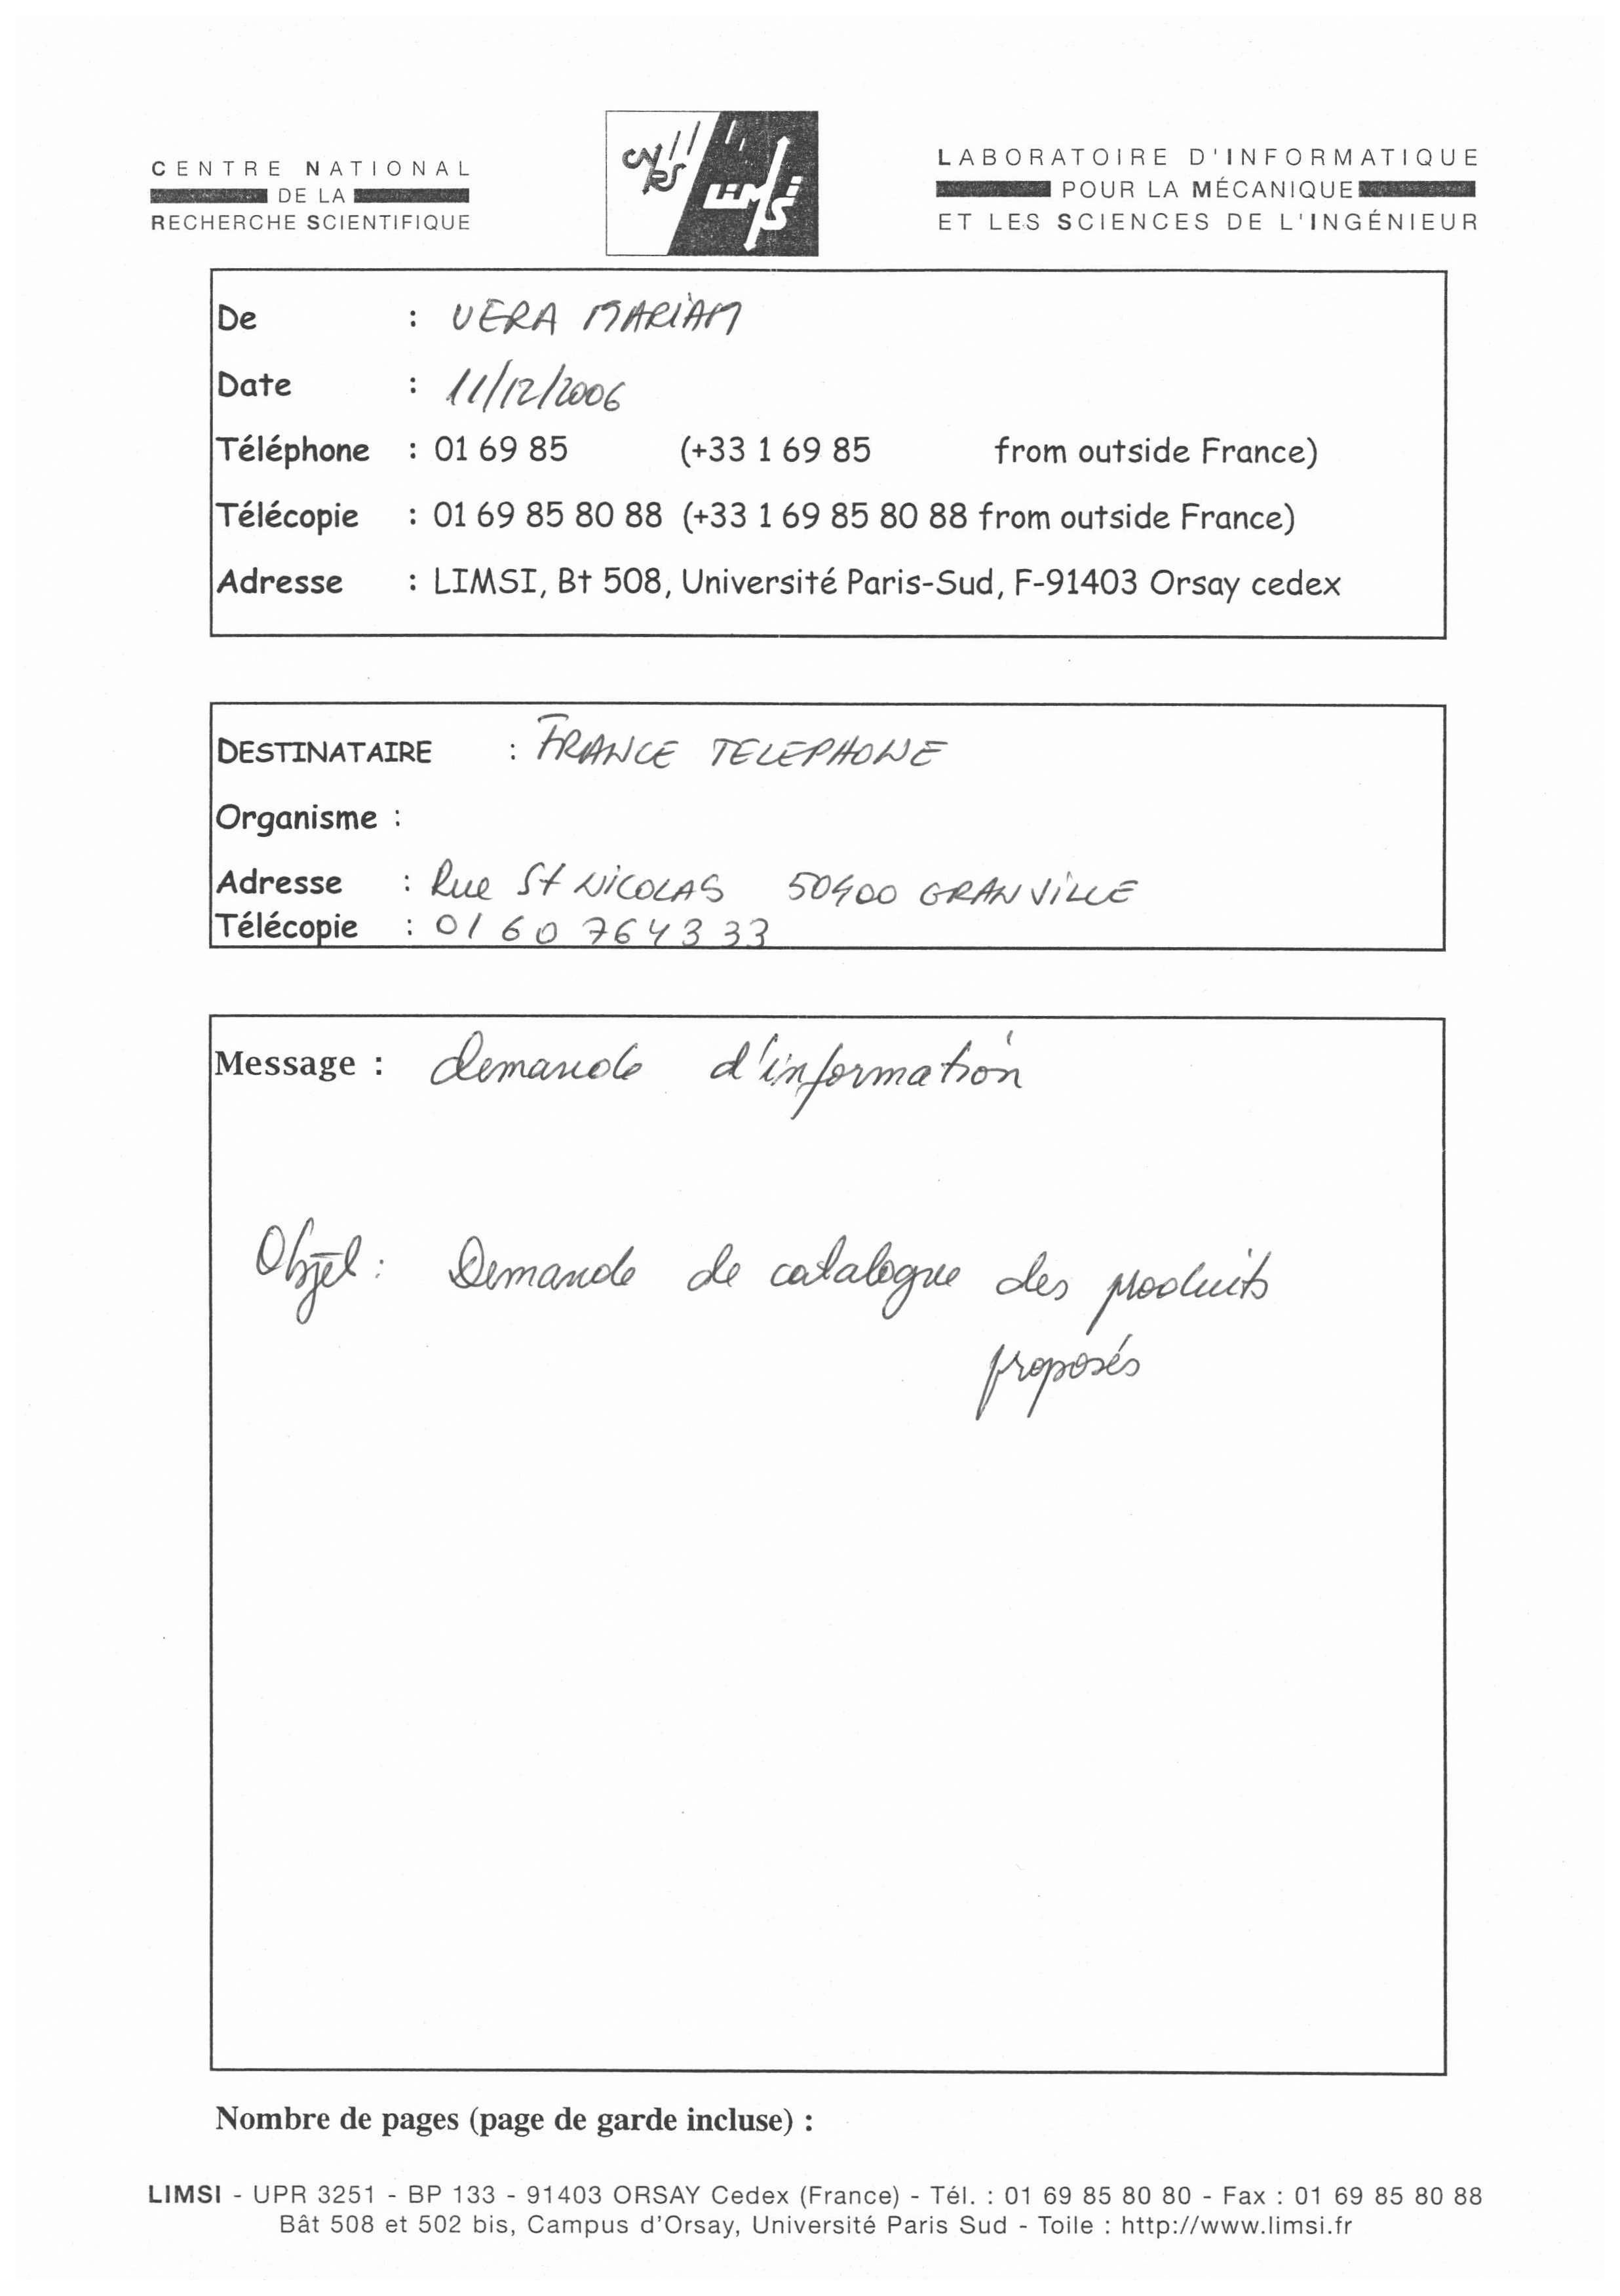 CENTRE NATIONAL
DE LA
RECHERCHE SCIENTIFIQUE
CNRS
LIMSI
LABORATOIRE D'INFORMATIQUE
POUR LA MÉCANIQUE
ET LES SCIENCES DE L'INGÉNIEUR
De : VERA MARIAM
Date : 11/12/2006
Téléphone : 01 69 85 (+33 1 69 85 from outside France)
Télécopie : 01 69 85 80 88 (+33 1 69 85 80 88 from outside France)
Adresse : LIMSI, Bt 508, Université Paris-Sud, F-91403 Orsay cedex
DESTINATAIRE : FRANCE TELEPHONE
Organisme :
Adresse : Rue St NICOLAS 50400 GRANVILLE
Télécopie : 01 60 76 43 33
Message : demande d'information
Objet : Demande de catalogue des produits
proposés
Nombre de pages (page de garde incluse) :
LIMSI - UPR 3251 - BP 133 - 91403 ORSAY Cedex (France) - Tél. : 01 69 85 80 80 - Fax : 01 69 85 80 88
Bât 508 et 502 bis, Campus d'Orsay, Université Paris Sud - Toile : http://www.limsi.fr